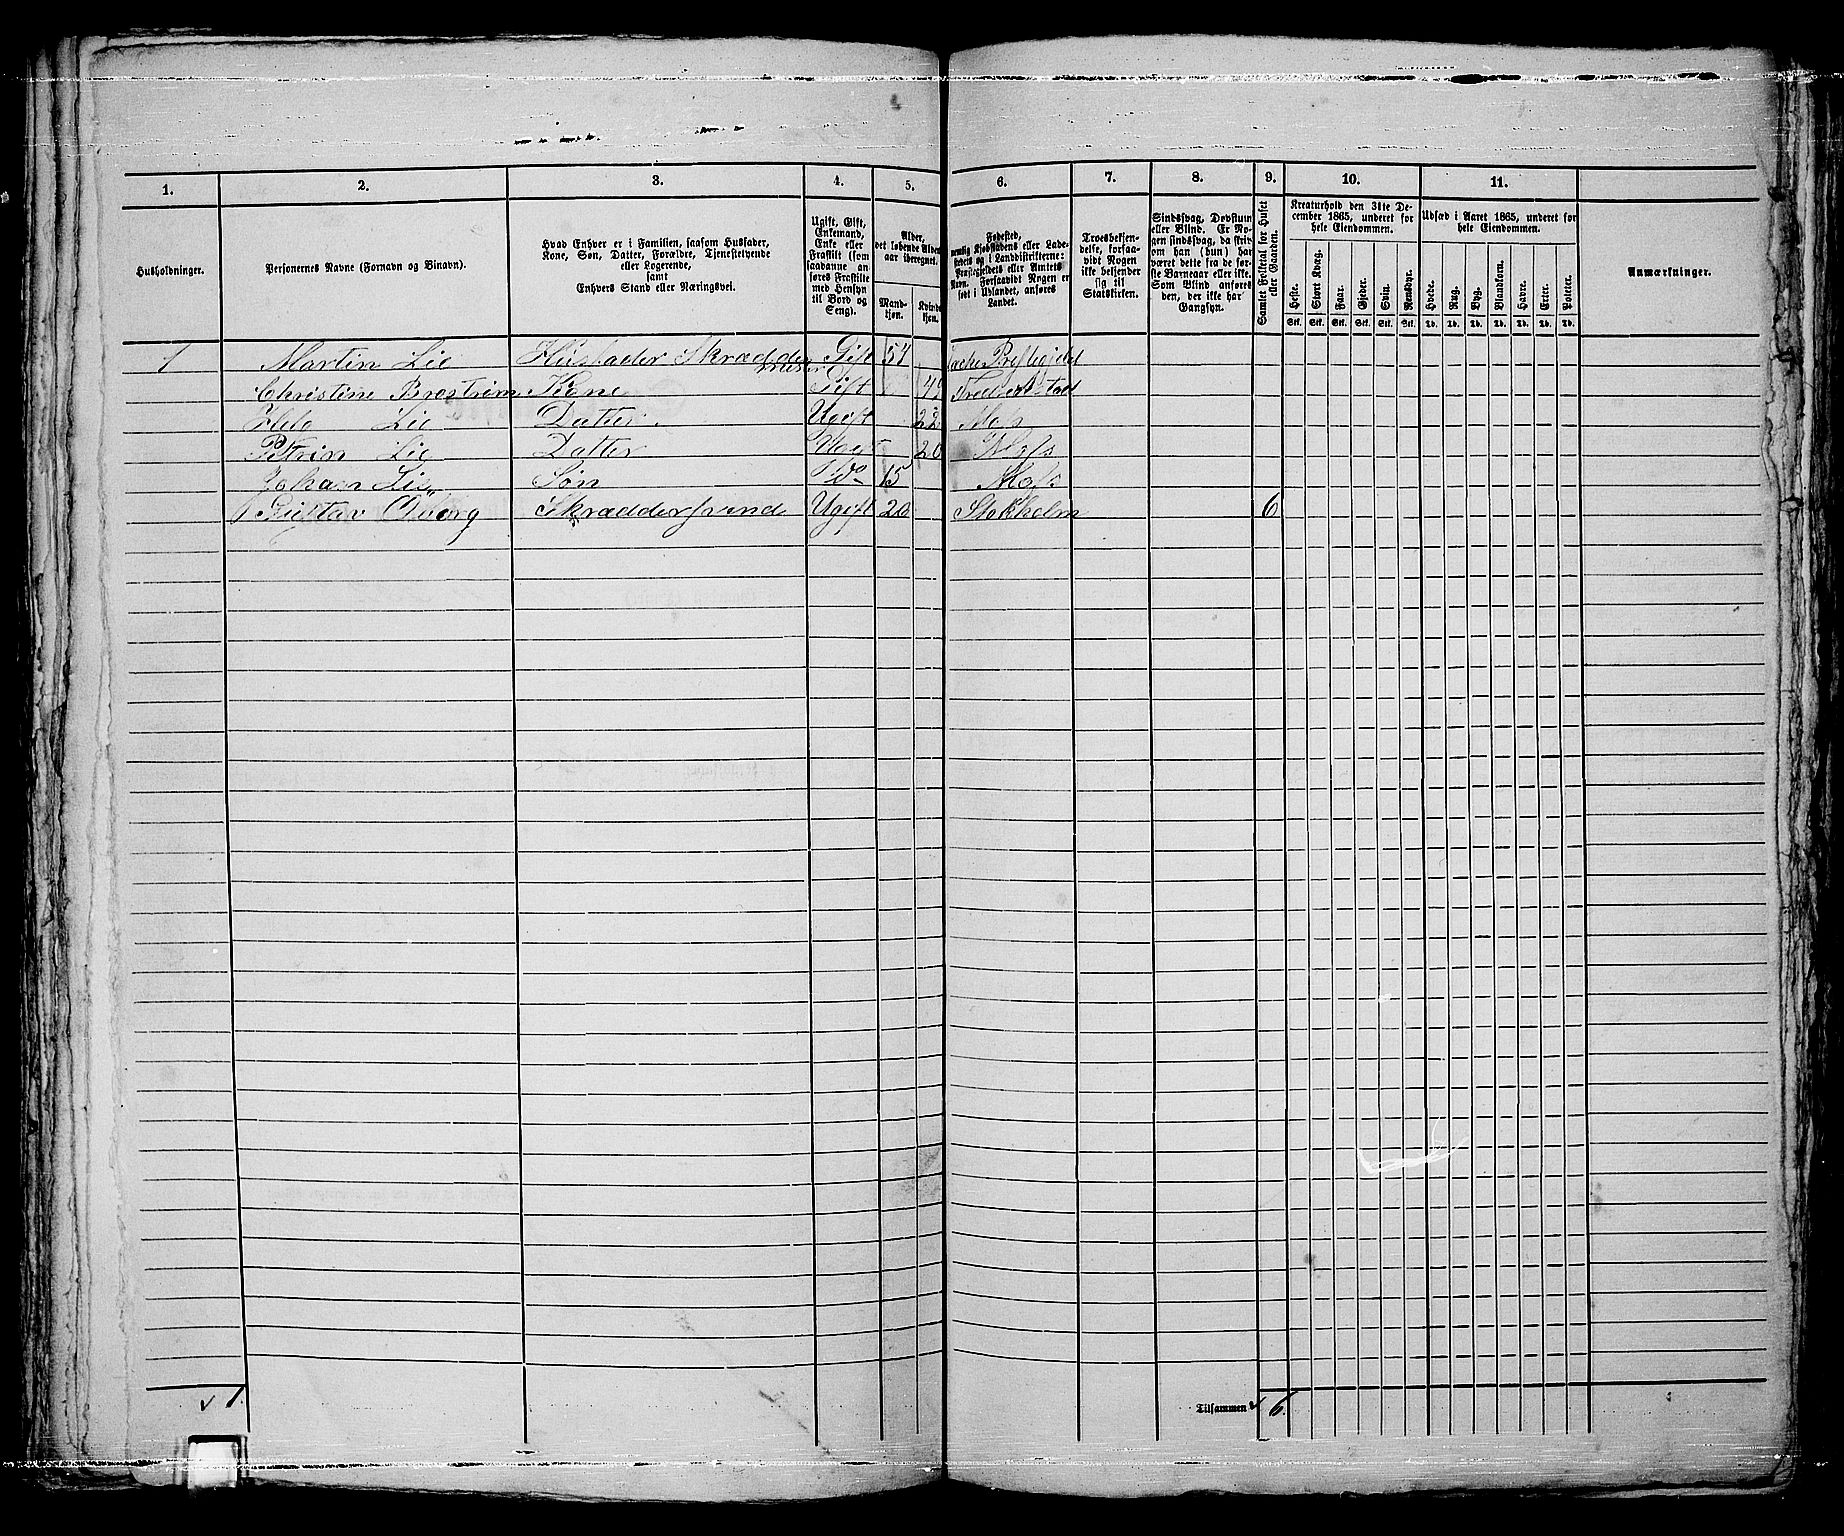 1. 2. 3. 4. 5. 6. 7. 8. 9. 10. 11.
Husholdninger.
Personernes Navne (Fornavn og Binavn).
Hvad Enhver er i Familien, saasom Husfader,
Kone, Søn, Datter, Forældre, Tjenestetyende
eller Logerende,
samt
Enhvers Stand eller Næringsvei.
Ugift, Gift,
Enkemand,
Enke eller
Fraskilt (som
saadanne an-
føres Fraskilte
med Hensyn
til Bord og
Seng).
Alder,
det løbende Alders-
aar iberegnet.
Mand-
kjøn.
Kvinde-
kjøn.
Fødested,
nemlig Kjøbstadens eller Lade-
stedets og i Landdistrikterne:
Præstegjeldets eller Amtets
Navn. Forsaavidt Nogen er
født i Udlandet, anføres
Landet.
Troesbekjen-
delse, forsaa-
vidt Nogen
ikke bekjender
sig til
Statskirken.
Sindssvag, Døvstum
eller Blind. Er No-
gen sindssvag, da skriv
om han (hun) har
været dette fra de før-
ste Barneaar eller ikke.
Som Blind anføres
den, der ikke har
Gangsyn.
Samlet Folketal for Huset
eller Gaarden.
Kreaturhold den 31te De-
cember 1865, underet for
hele Eiendommen.
Heste. Stort Kvæg. Faar. Gjeder. Svin. Rensdyr.
Stk. Stk. Stk. Stk. Stk. Stk.
Udsæd i Aaret 1865, underet for
hele Eiendommen.
Hvede. Rug. Byg. Blandkorn. Havre. Erter. Poteter.
Td. Td. Td. Td. Td. Td. Td.
Anmærkninger.
1 Martin Lie Husfader Skrædder Gift 54 Prestegjeld
mester
Christine Brostrøm Kone Gift Fredrikstad
Lie Datter Ugift 22 Moss
Petrin Lie Datter Ugift 20 Moss
Johan Lie Søn Do 15 Moss
Gustav Öberg Skræddersvend Ugift 20 Stokholm 6
1.
Tilsammen 6.